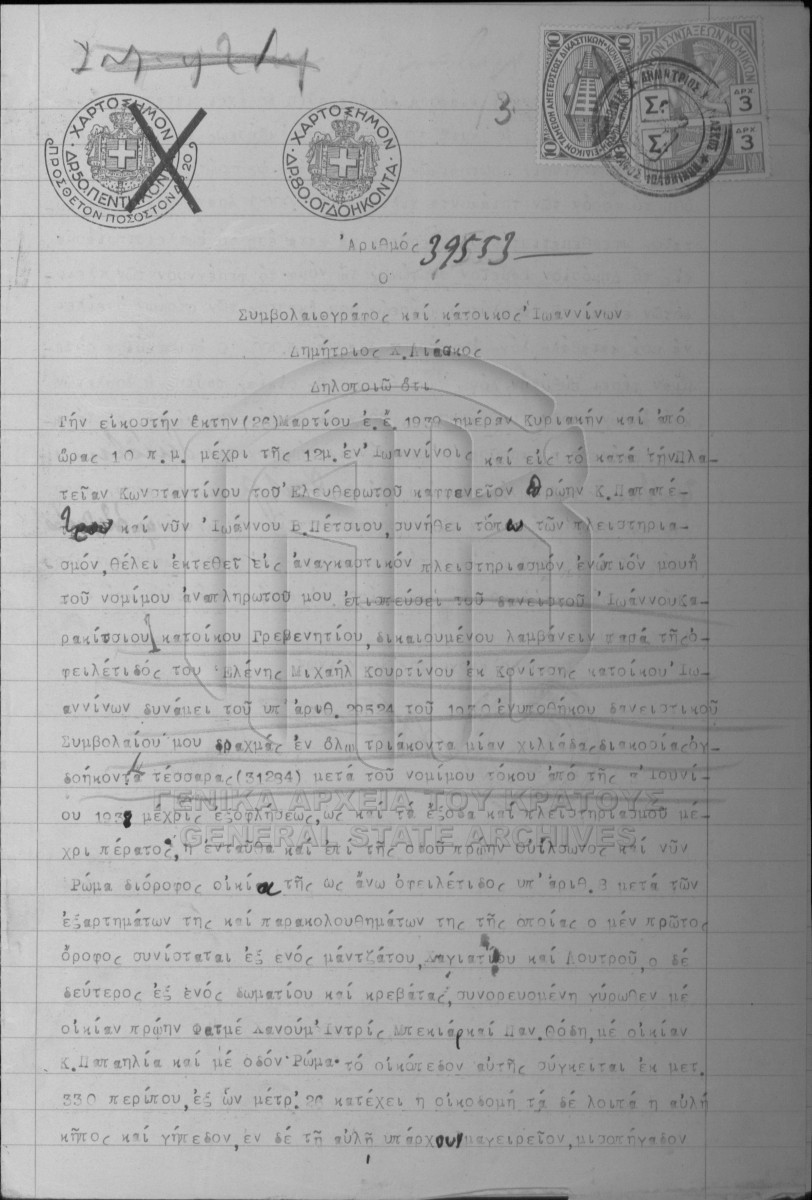 ΧΑΡΤΟΣΗΜΟΝ
ΔΡ.50.ΠΕΝΤΗΚΟΝΤΑ
ΠΡΟΣΘΕΤΟΝ ΠΟΣΟΣΤΟΝ ΔΡ. 20
ΧΑΡΤΟΣΗΜΟΝ
ΔΡ.80.ΟΓΔΟΗΚΟΝΤΑ
3
10 10
ΑΡΧ 3
ΑΡΧ 3
Ἀριθμός 39553
Ο
Συμβολαιογράφος καί κάτοικος Ἰωαννίνων
Δημήτριος Κ. Λιάσκος
Δηλοποιῶ ὅτι
Τήν εἰκοστήν ἕκτην(26)Μαρτίου ἐ.ἔ.1939 ημέραν Κυριακήν καί ἀπό
ὥρας 10 π.μ. μέχρι τῆς 12μ.ἐν Ἰωαννίνοις καί εἰς τό κατά τήνΠλα-
τεῖαν Κωνσταντίνου τοῦ Ἐλευθερωτοῦ καφφενεῖον πρώην Κ.Παπαπέ-
τρου καί νῦν Ἰωάννου Β.Πέτσιου,συνήθει τόπω τῶν πλειστηρια-
σμόν,θέλει ἐκτεθεῖ εἰς ἀναγκαστικόν πλειστηριασμόν ἐνώπιόν μουή
τοῦ νομίμου ἀναπληρωτοῦ μου ἐπισπεύσει τοῦ δανειστοῦ ἸωάννουΚα-
ρακίτσιου κατοίκου Γρεβενητίου,δικαιουμένου λαμβάνειν παρά τῆςὀ-
φειλέτιδός του Ἑλένης Μιχαήλ Κουρτίνου ἐκ Κονίτσης κατοίκου Ἰω-
αννίνων δυνάμει τοῦ ὑπ'ἀριθ. τοῦ ἐνυποθήκου δανειστικοῦ
Συμβολαίου μου δραχμάς ἐν ὅλω τριάκοντα μίαν χιλιάδαςδιακοσίαςὀγ-
δοήκοντα τέσσαρας(31284) μετά τοῦ νομίμου τόκου ἀπό τῆς α'Ἰουνί-
ου 1938 μέχρις ἐξοφλήσεως,ὡς καί τά ἔξοδα καί πλειστηριασμοῦ μέ-
χρι πέρατος, ἡ ἐνταῦθα καί ἐπί τῆς ὁδοῦ πρώην Οὐΐλσωνος καί νῦν
Ρώμα διόροφος οἰκία τῆς ὡς ἄνω ὀφειλέτιδος ὑπ'ἀριθ. 3 μετά τῶν
ἐξαρτημάτων της καί παρακολουθημάτων της τῆς ὁποίας ο μέν πρῶτος
ὄροφος συνίσταται ἐξ ἑνός μάντζάτου,Χαγιατίου καί Λουτροῦ,ο δέ
δεύτερος ἐξ ἑνός δωματίου καί κρεβάτας,συνορευομένη γύρωθεν μέ
οἰκίαν πρώην Φατμέ Χανούμ Ἰντρίς Μπεκιάρ καί Παν.Θόδη,μέ οἰκίαν
Κ.Παπαηλία καί μέ ὁδόν Ρώμα·τό οἰκόπεδον αὐτῆς σύγκειται ἐκ μετ.
330 περίπου,ἐξ ὧν μέτρ.26 κατέχει η οἰκοδομή τά δέ λοιπά η αὐλή
κῆπος καί γήπεδον,ἐν δέ τῆ αὐλῆ ὑπάρχουν μαγειρεῖον,μισοπήγαδον
ΓΕΝΙΚΑ ΑΡΧΕΙΑ ΤΟΥ ΚΡΑΤΟΥΣ
GENERAL STATE ARCHIVES